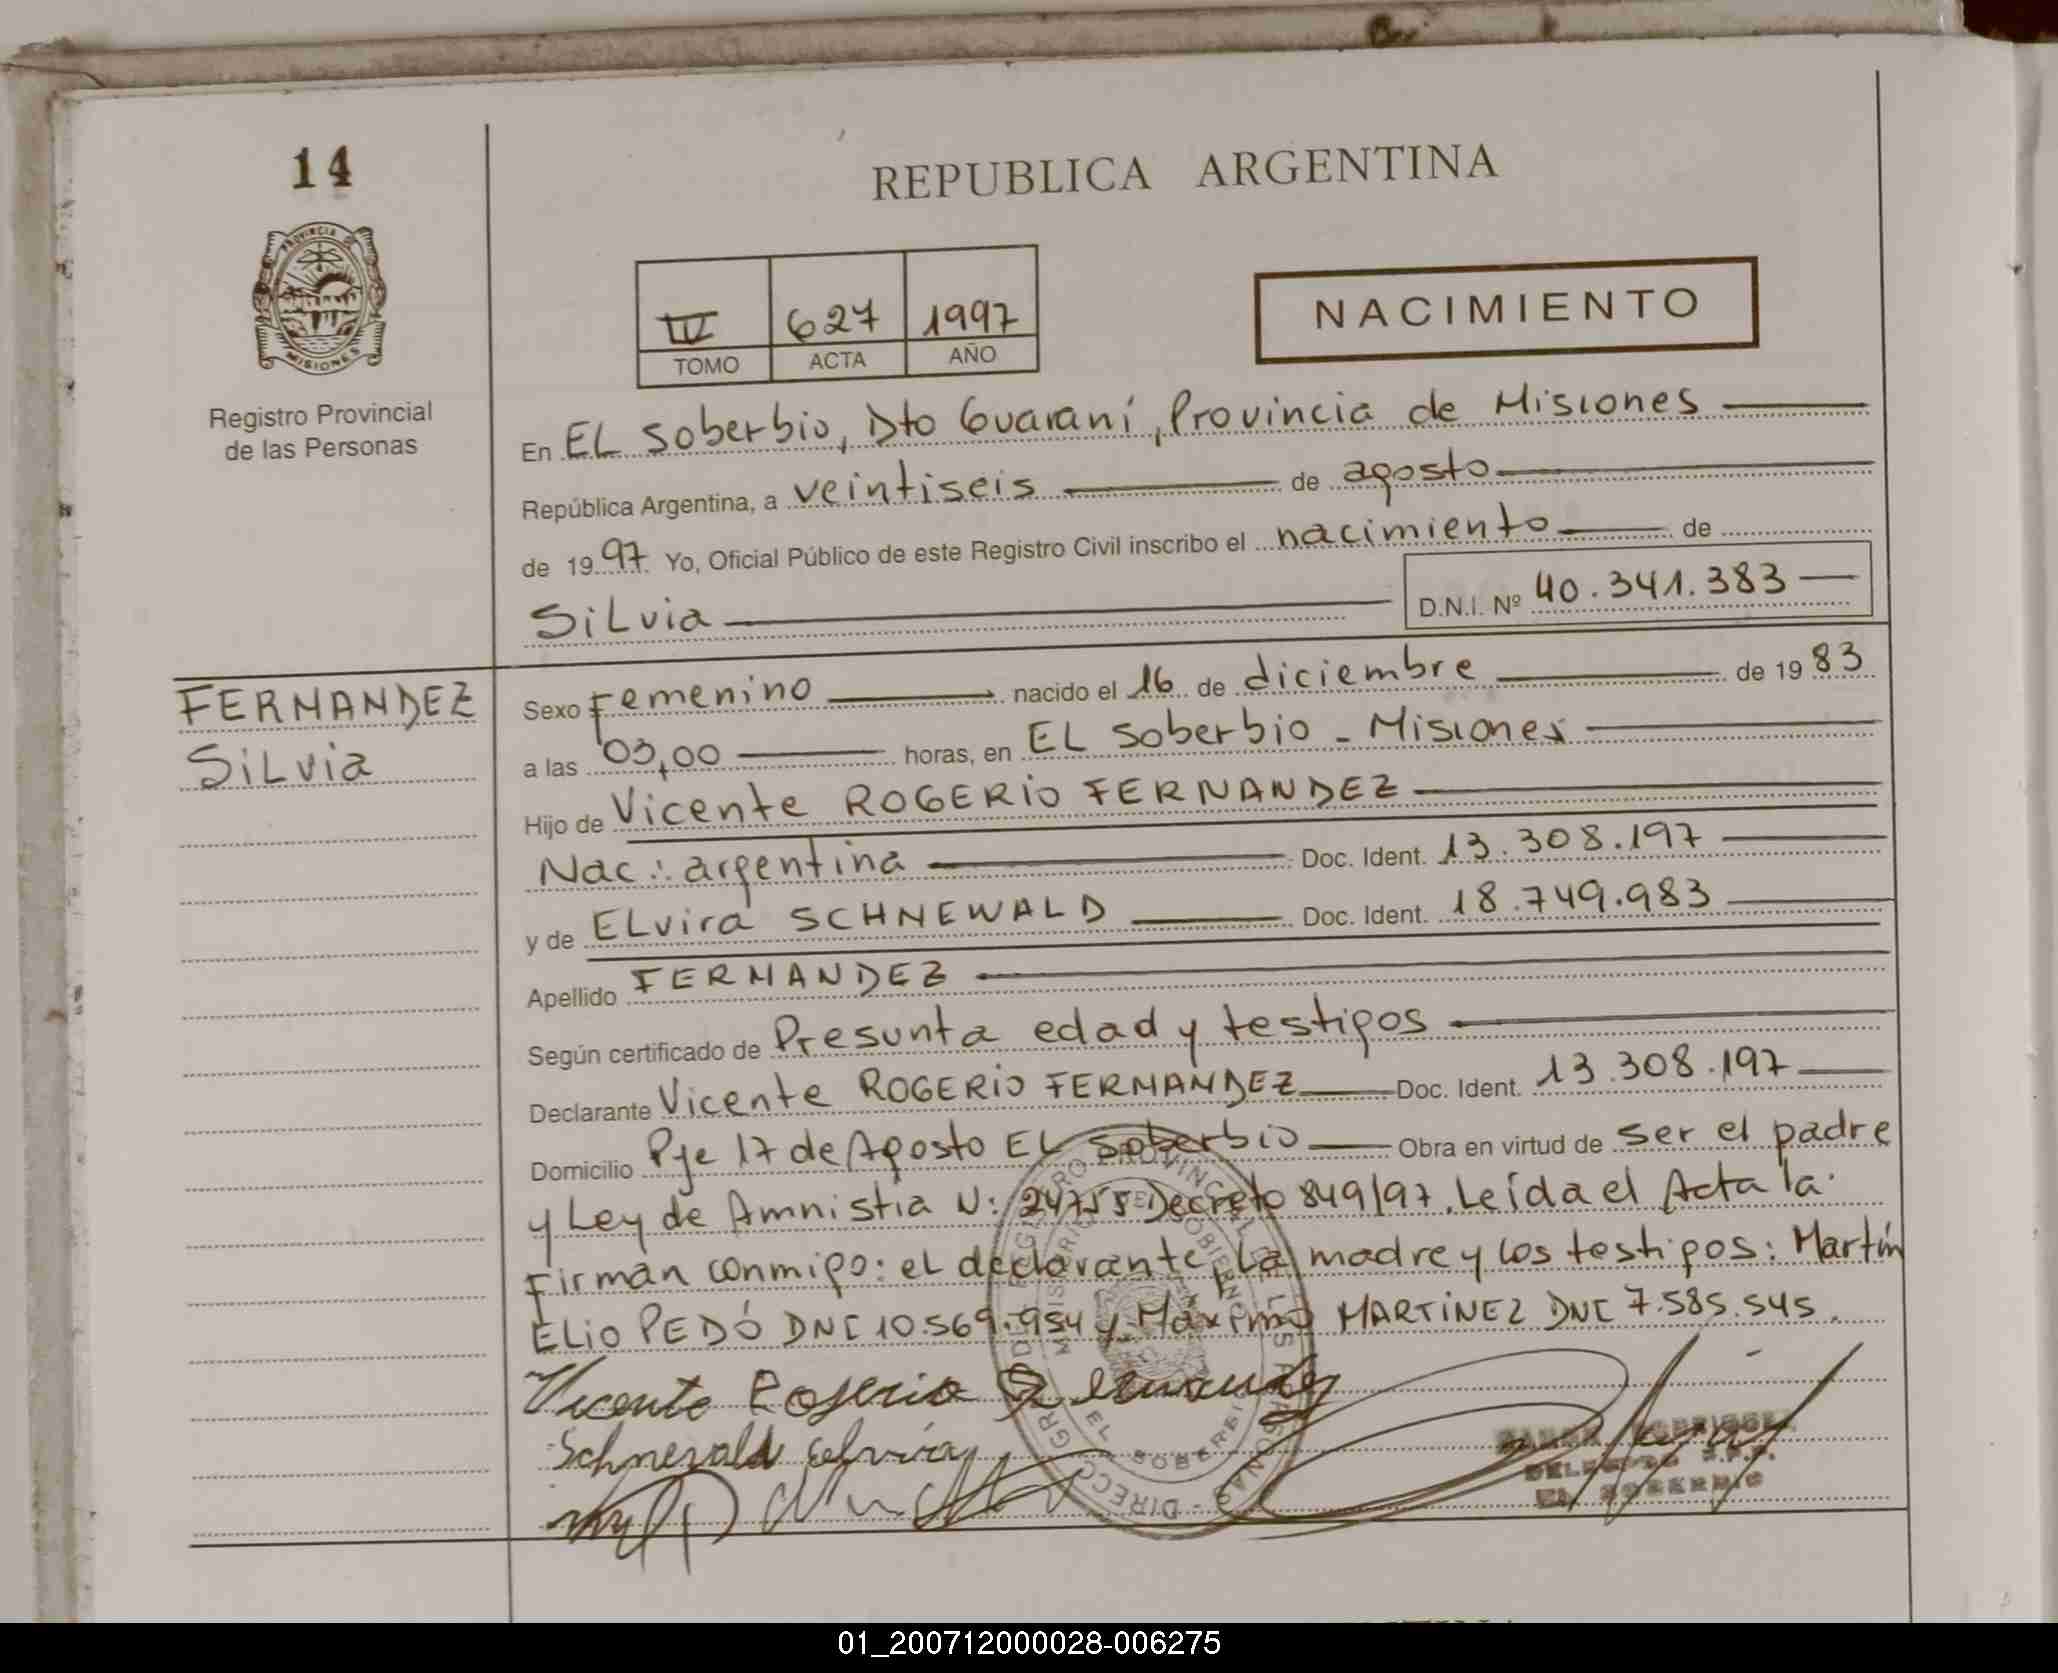 14
REPUBLICA ARGENTINA
PROVINCIA DE
MISIONES
Registro Provincial
de las Personas
IV 627 1997
TOMO ACTA AÑO
NACIMIENTO
En EL Soberbio, Dto Guaraní, Provincia de Misiones
República Argentina, a veintiseis de agosto
de 1997 Yo, Oficial Público de este Registro Civil inscribo el nacimiento de
Silvia D.N.I. Nº 40.341.383
FERNANDEZ
Silvia
Sexo Femenino nacido el 16 de diciembre de 1983
a las 03,00 horas, en EL Soberbio - Misiones
Hijo de Vicente ROGERIO FERNANDEZ
Nac.: argentina Doc. Ident. 13.308.197
y de ELvira SCHNEWALD Doc. Ident. 18.749.983
Apellido FERNANDEZ
Según certificado de Presunta edad y testigos
Declarante Vicente ROGERIO FERNANDEZ Doc. Ident. 13.308.197
Domicilio Pje 17 de Agosto EL Soberbio Obra en virtud de ser el padre
y Ley de Amnistia N: 24755 Decreto 849/97. Leída el Acta la
Firman conmigo: el declarante, La madre y los testigos: Martín
ELio PEDÓ DNI 10.569.954 y Máximo MARTINEZ DNI 7.585.545.
Vicente Rogerio Fernandez
Schnevald elvira
EL SOBERBIO
01_200712000028-006275